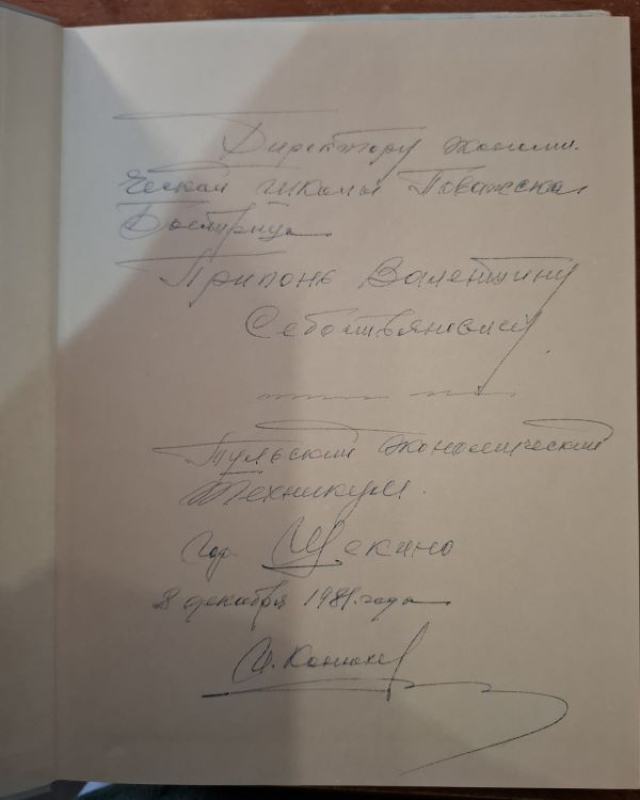 Директору экономи-
ческой школы Поважска
Быстрица
Припонь Валентину
Себастьяновичу
Тульский экономический
техникум.
гор. Щекино
8 декабря 1981 года
И. Конюхов